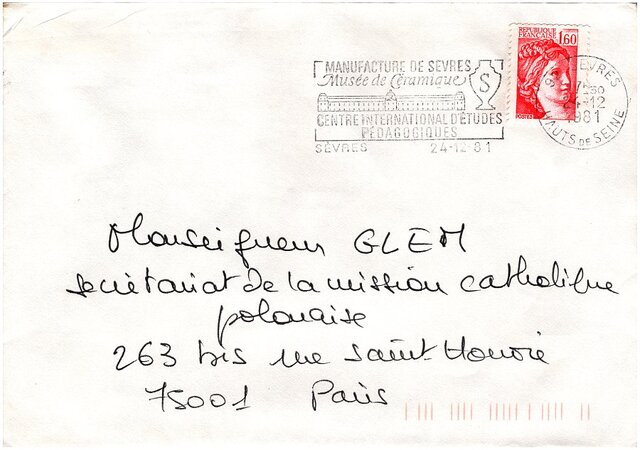 REPUBLIQUE
FRANCAISE
1,60
MANUFACTURE DE SEVRES
Musée de Céramique
S
CENTRE INTERNATIONAL D'ÉTUDES
PÉDAGOGIQUES
SÈVRES 24-12-81
SEVRES
24-12
1981
HAUTS DE SEINE
POSTES
Monseigneur GLEM
secrétariat de la mission catholique
polonaise
263 bis rue Saint-Honoré
75001 Paris